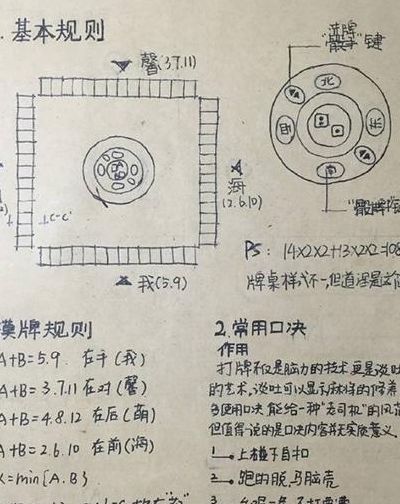 基本规则
馨(3.7.11)
海
(2.6.10)
我(5.9)
+C-C'
键
北
东
南
西
PS: 14×2×2+13×2×2=108
牌桌样式不一,但道理是这
模牌规则
A+B=5.9. 在手(我)
A+B=3.7.11 在对(馨)
A+B=4.8.12 在后(萌)
A+B=2.6.10 在前(海)
X=min{A.B}
2.常用口决
作用
打牌不仅是脑力的技术更是谈吐
的艺术,谈吐可以显示麻将的修养
使用口决能给一种"老司机"的风范
但值得一说的是口决内容并无实质意义
1. 上碰子自扣
2. 跑的脱马脑壳
3.